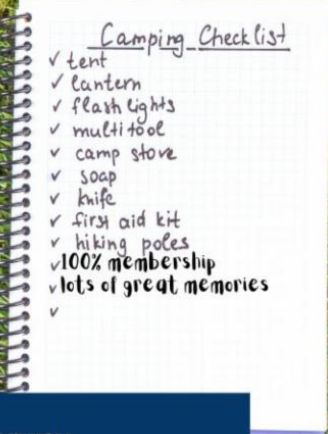 Camping Checklist
✓ tent
✓ lantern
✓ flash lights
✓ multitool
✓ camp stove
✓ soap
✓ knife
✓ first aid kit
✓ hiking poles
✓ 100% membership
✓ lots of great memories
✓